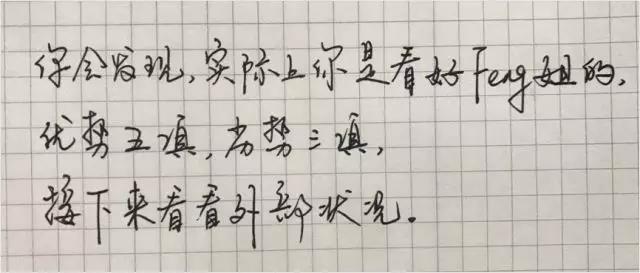 你会发现,实际上你是看好Feng姐的,
优势五项,劣势三项,
接下来看看外部状况.